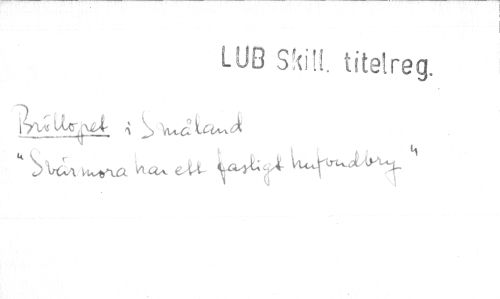 LUB Skill. titelreg.
Bröllopet i Småland
"Svärmora har ett fasligt hufvudbry"